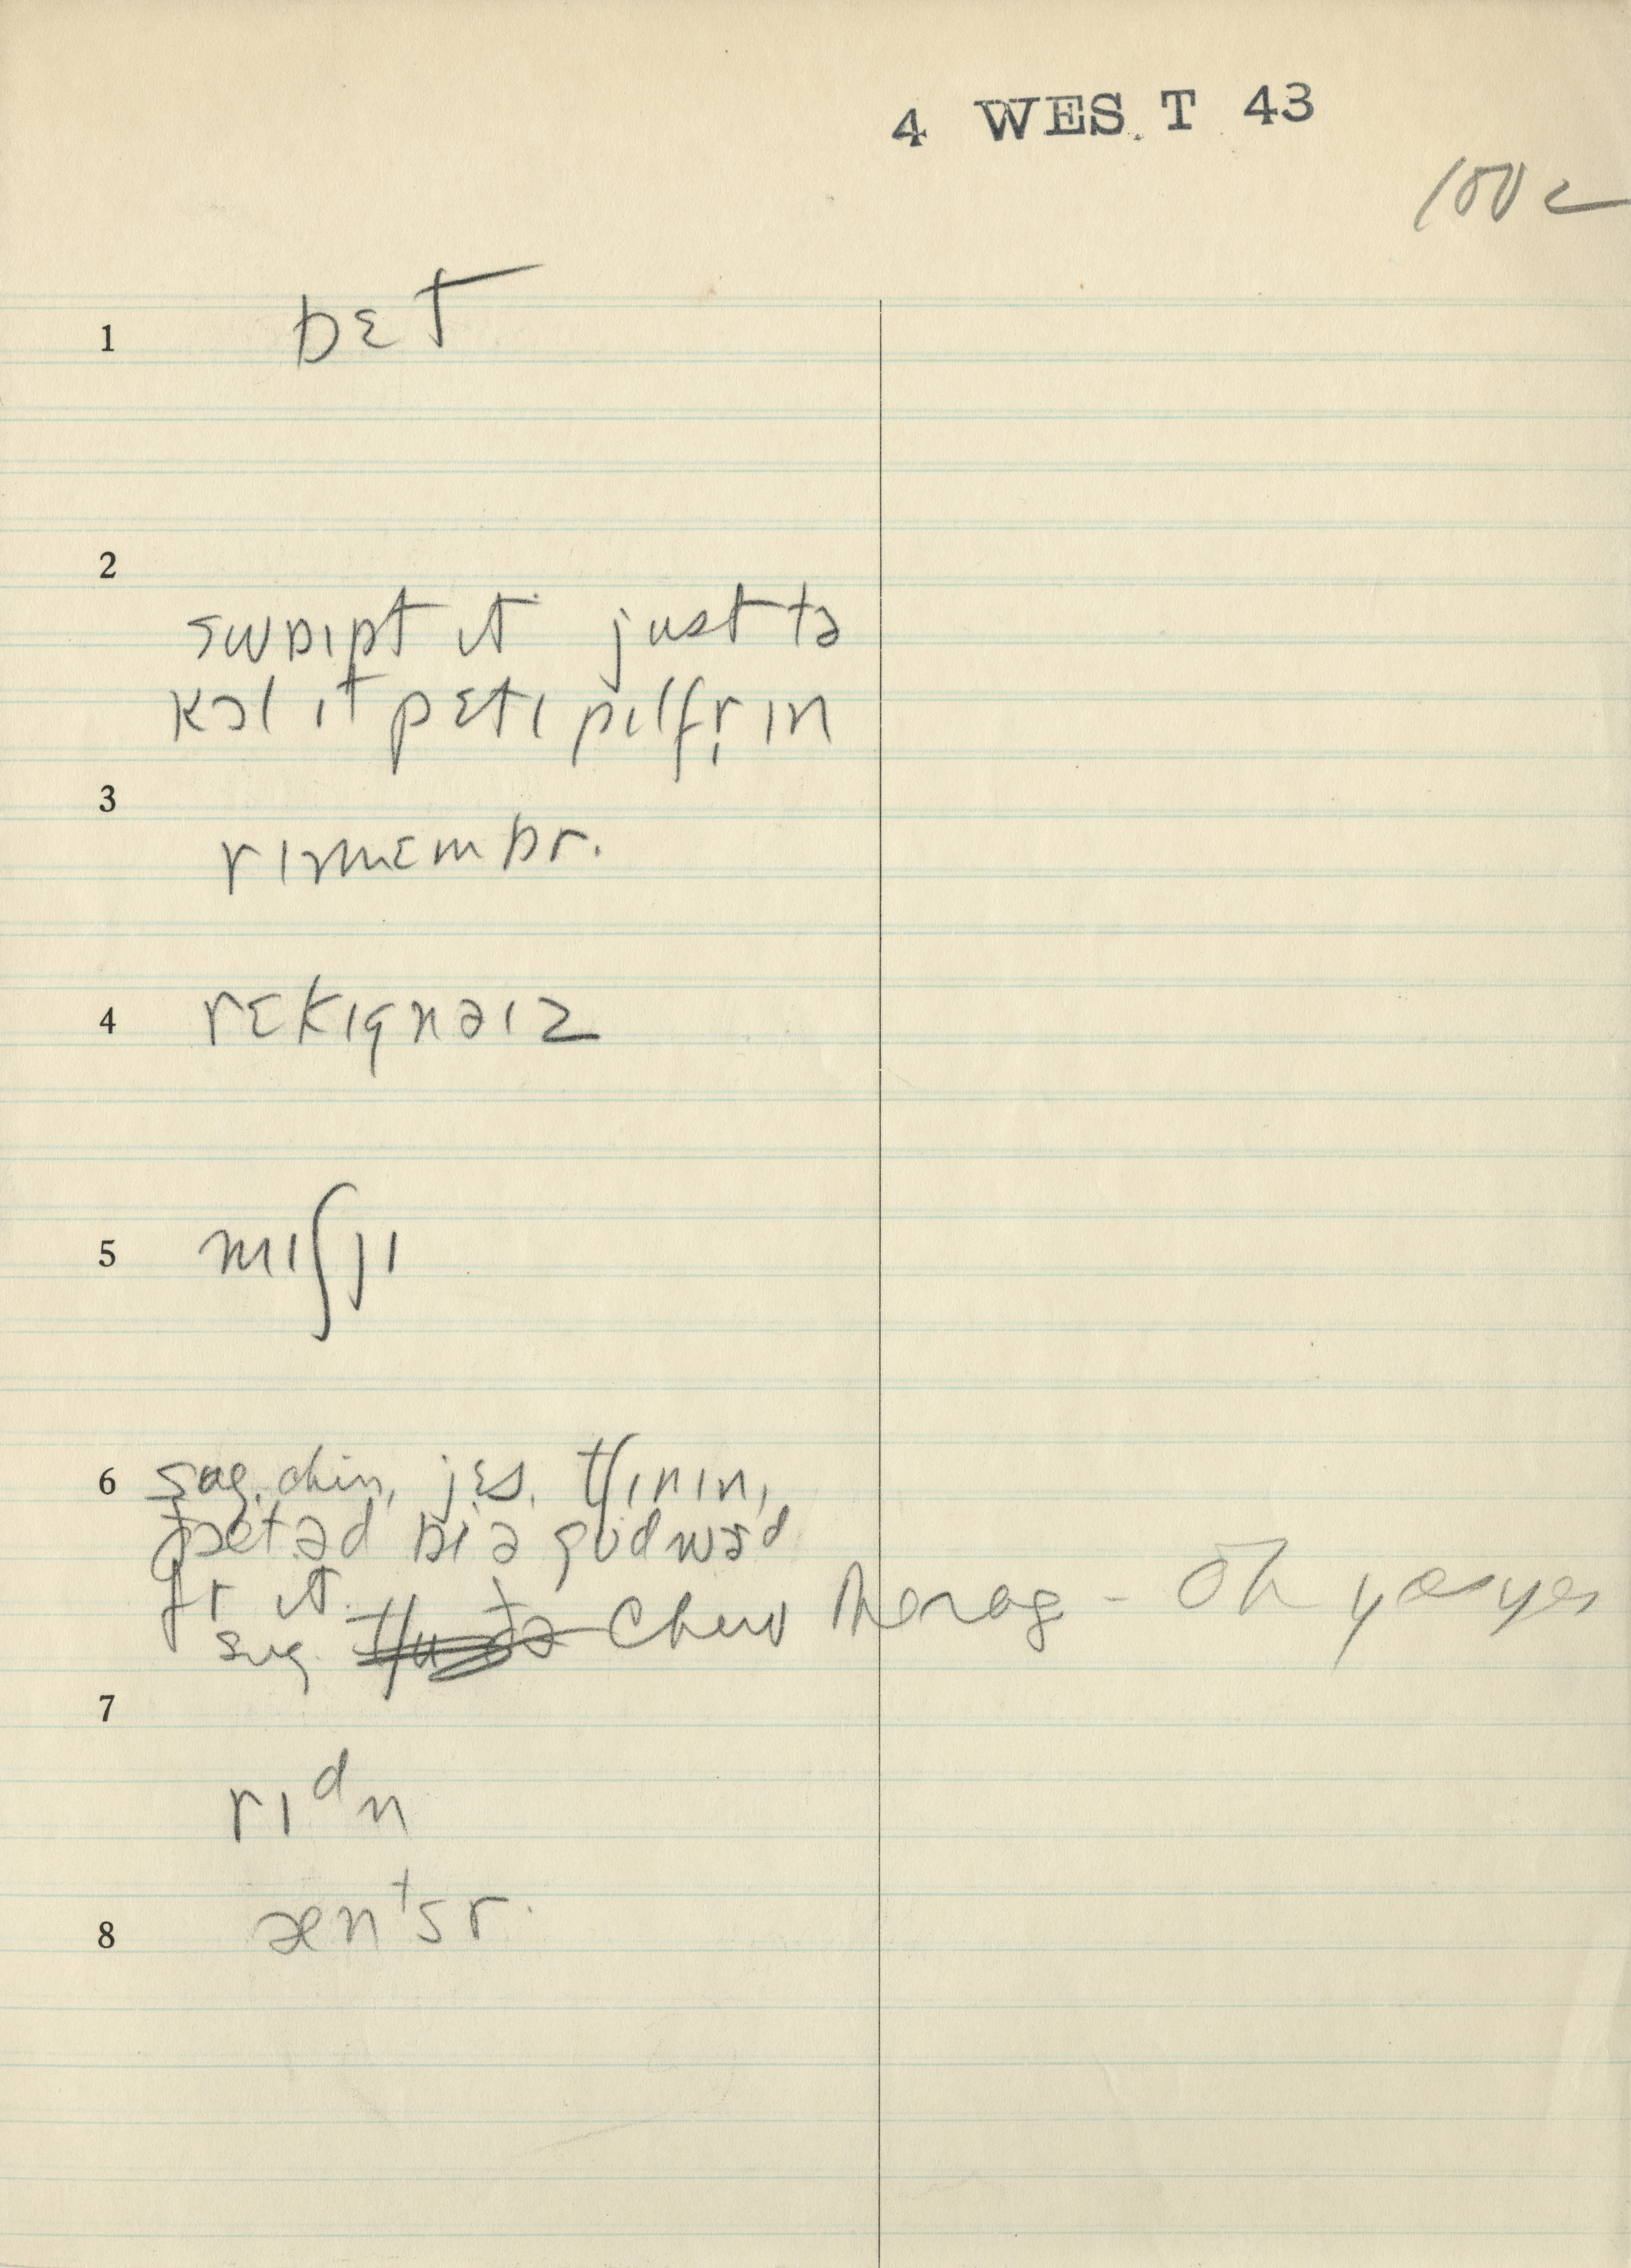 4 WEST 43
100 c
1 bɛt
2
swɒɪpt ɪt just tə
kɔl ɪt pɛtɪ pɪlfr̩ɪn
3
rɪmɛmbr.
4 rɛkɪgnaɪz
5 mɪʃjɪ
6 sug. chin, jɛs. tʃɪnɪn,
ðætəd bɪ ə gʊdwɜd
fr ɪt.
sug. chew the rag - oh yes yes
7
rɪᵈn
8 ænᵗsr.